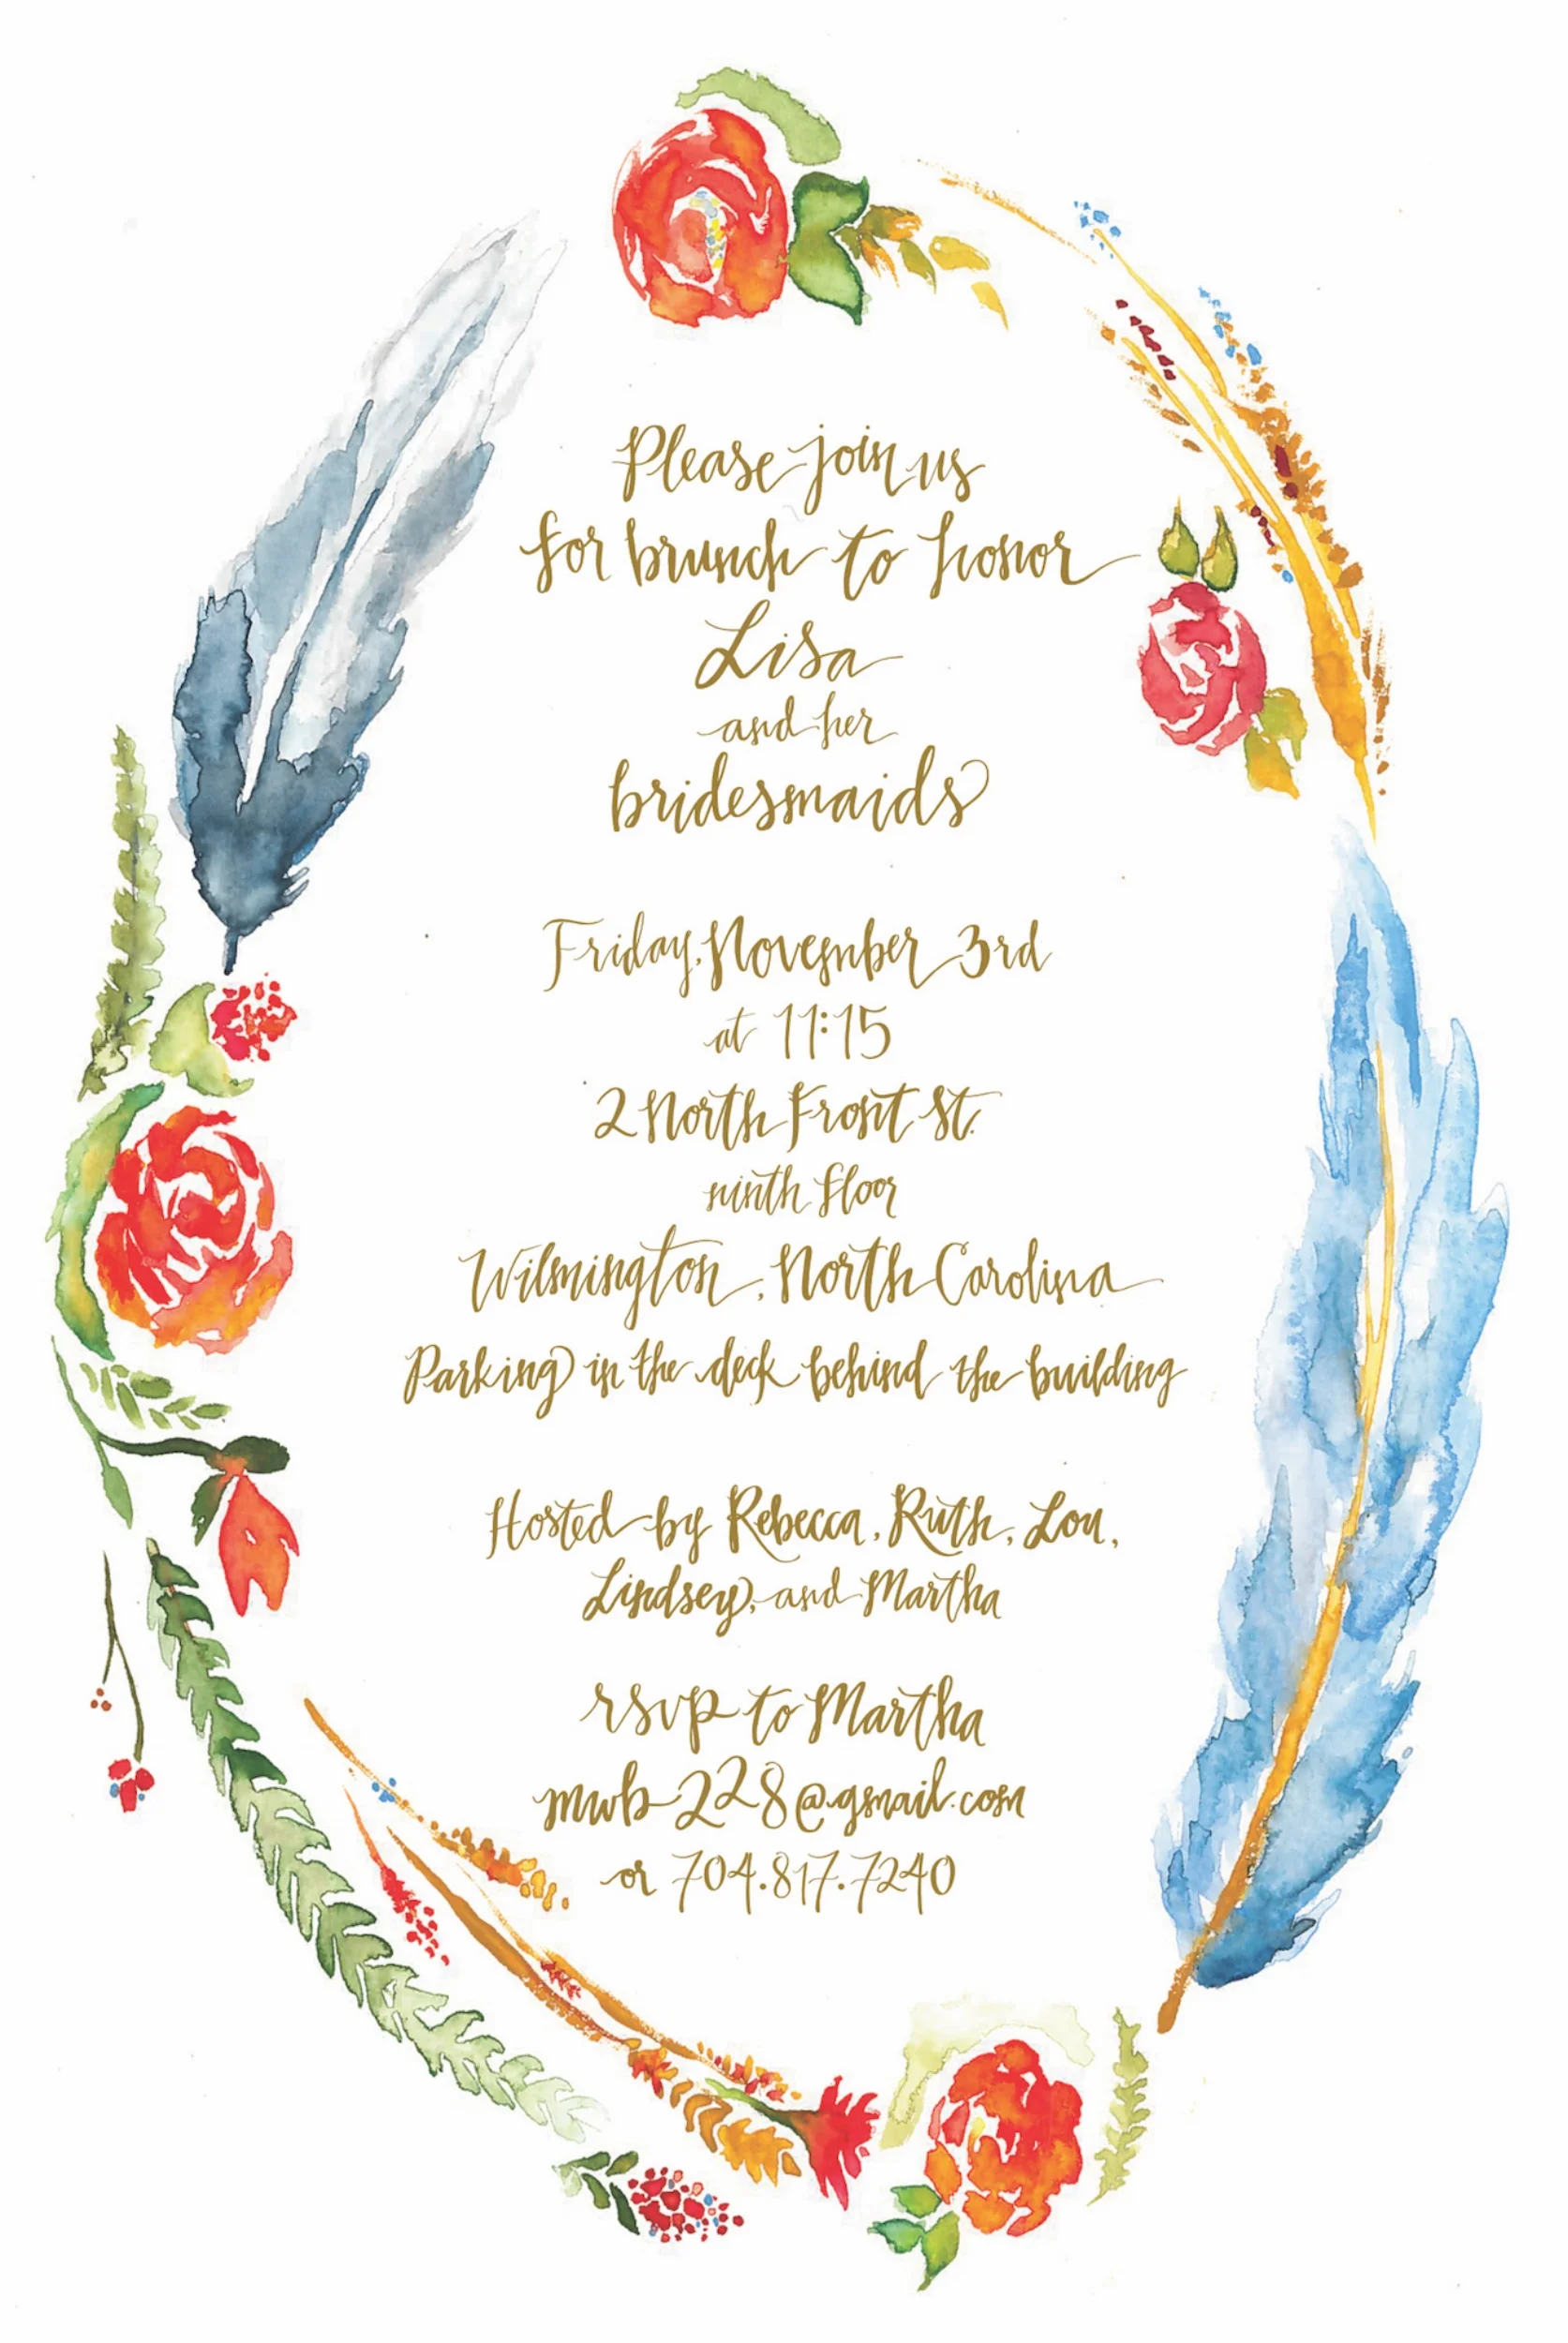 Please join us
for brunch to honor
Lisa
and her
bridesmaids
Friday, November 3rd
at 11:15
2 North Front St.
ninth floor
Wilmington, North Carolina
Parking in the deck behind the building
Hosted by Rebecca, Ruth, Lou,
Lindsey, and Martha
rsvp to Martha
mwb228@gmail.com
or 704.817.7240